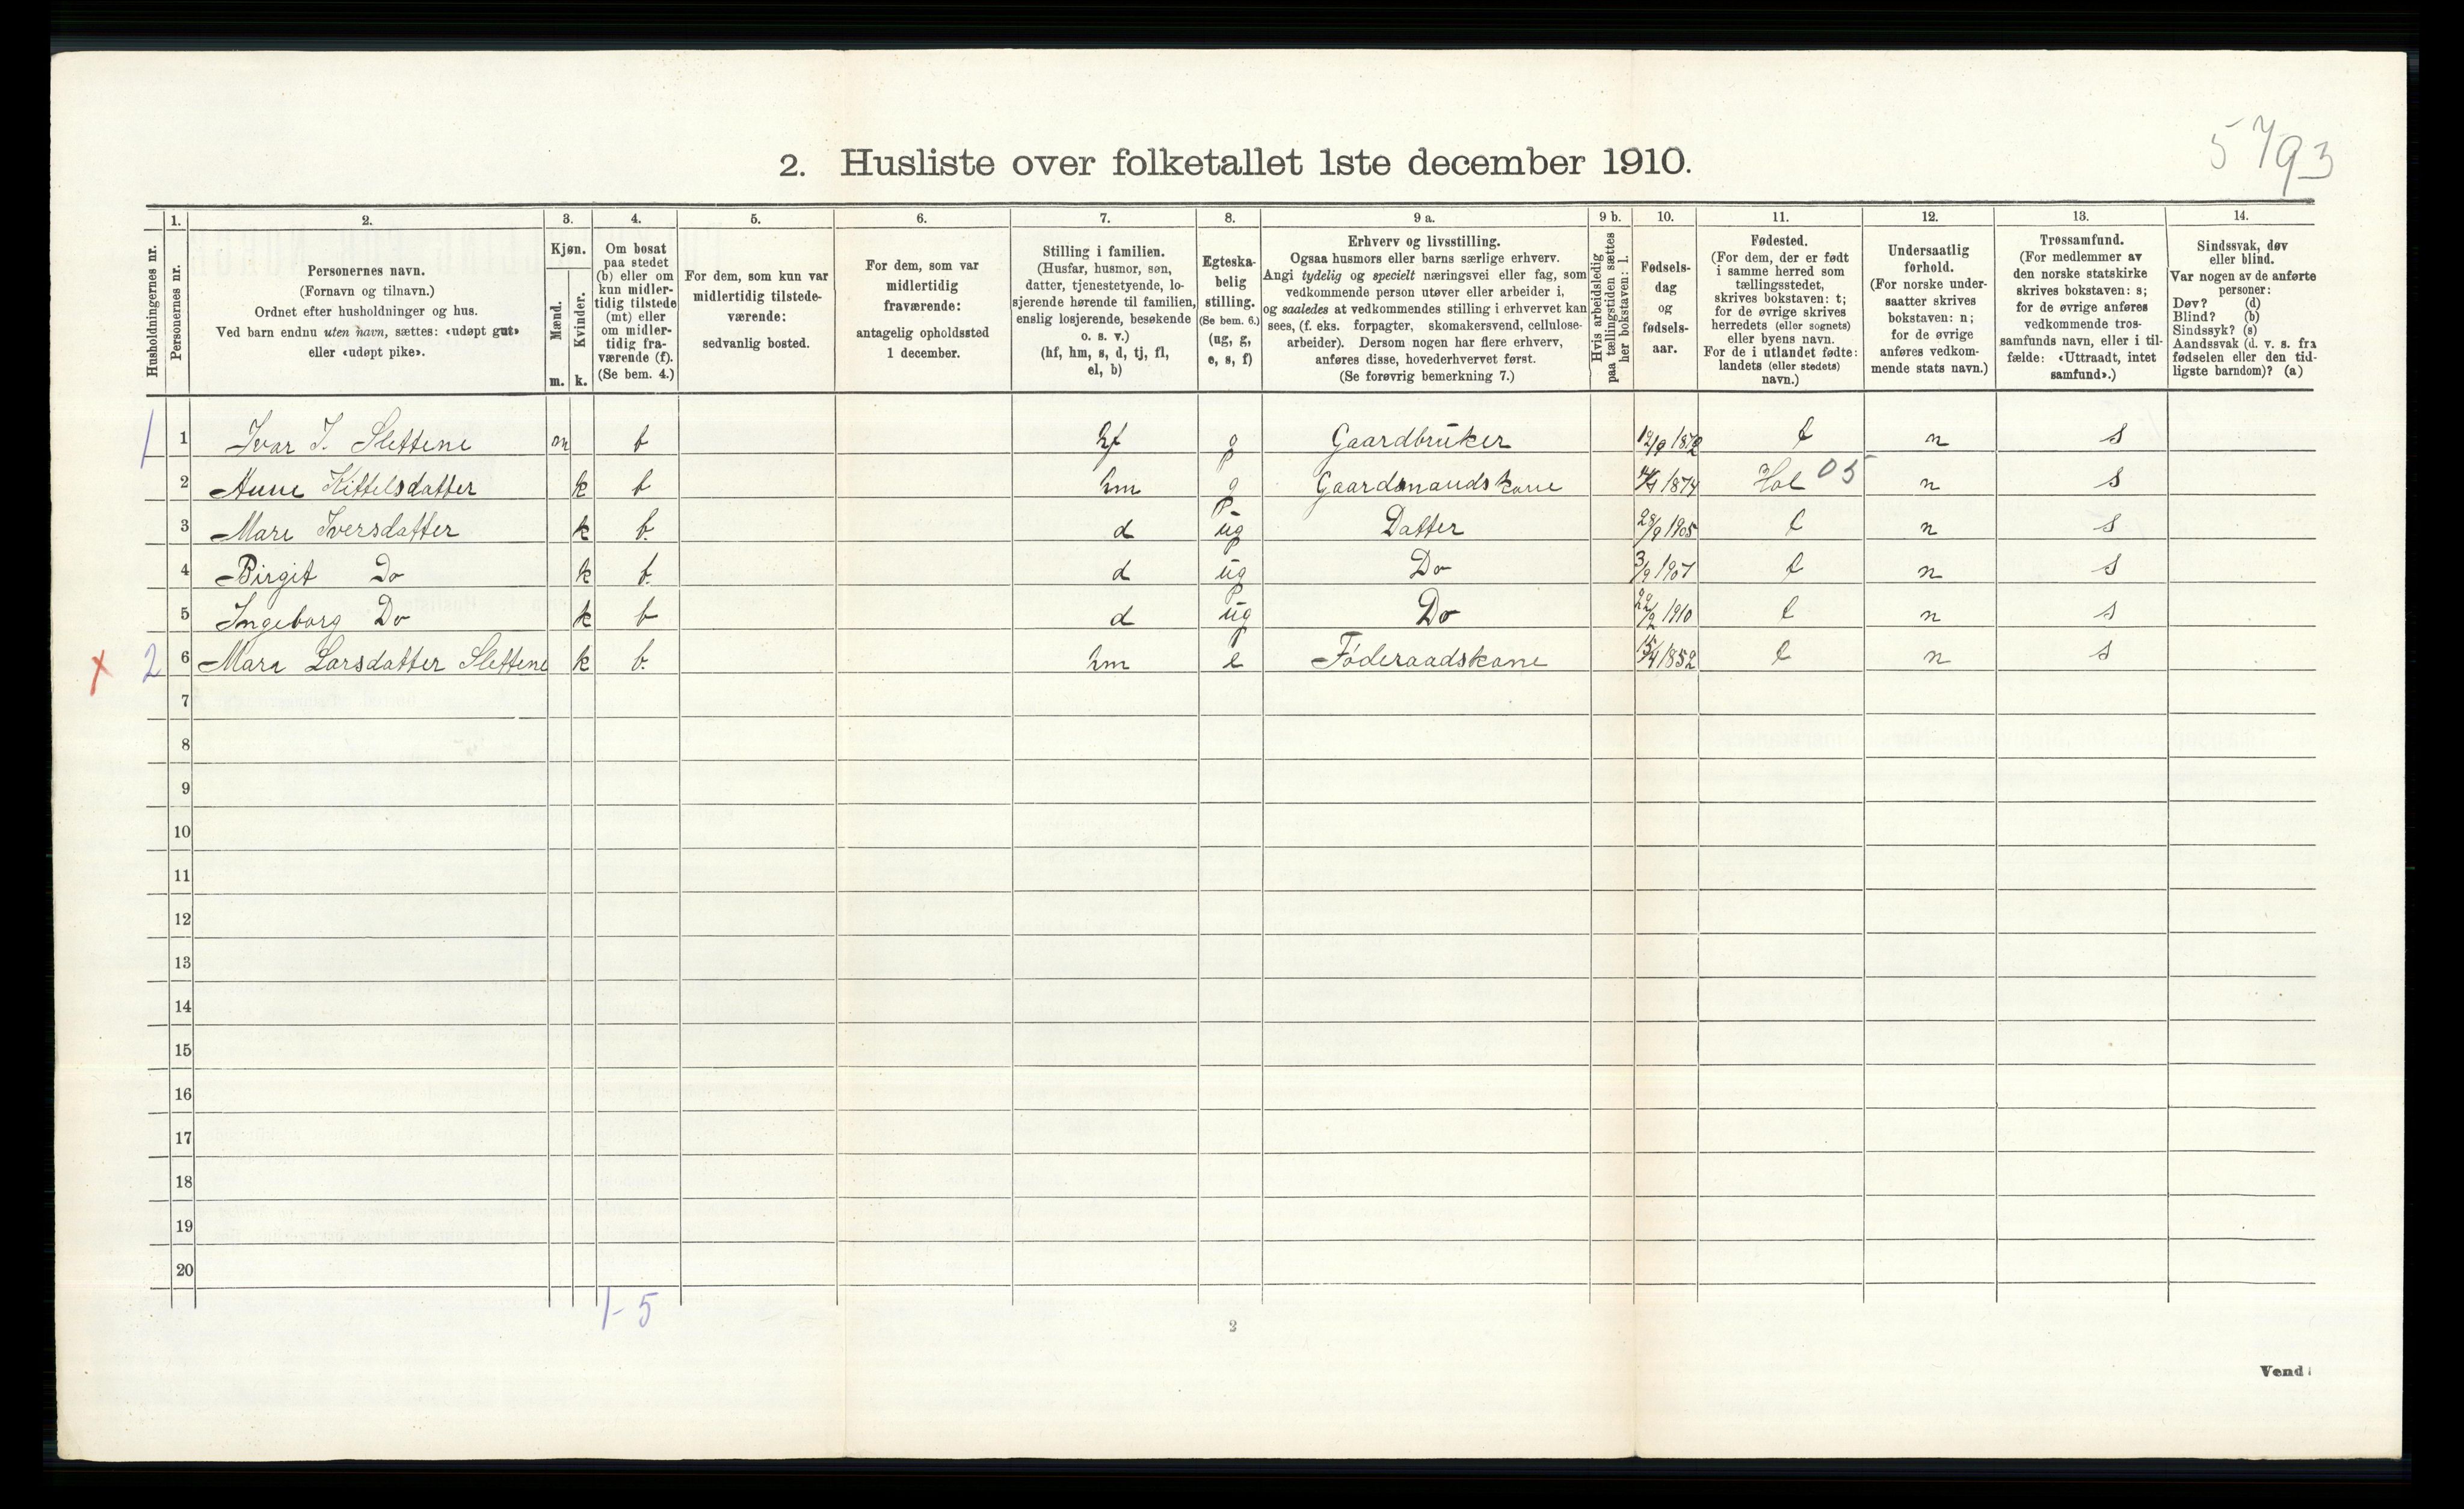 5793
2. Husliste over folketallet 1ste december 1910.
Husholdningernes nr.
1.
Personernes nr.
2.
Personernes navn.
(Fornavn og tilnavn.)
Ordnet efter husholdninger og hus.
Ved barn endnu uten navn, sættes: «udøpt gut»
eller «udøpt pike».
3.
Kjøn.
Mænd.
Kvinder.
m. k.
4.
Om bosat
paa stedet
(b) eller om
kun midler-
tidig tilstede
(mt) eller
om midler-
tidig fra-
værende (f).
(Se bem. 4.)
5.
For dem, som kun var
midlertidig tilstede-
værende:
sedvanlig bosted.
6.
For dem, som var
midlertidig
fraværende:
antagelig opholdssted
1 december.
7.
Stilling i familien.
(Husfar, husmor, søn,
datter, tjenestetyende, lo-
sjerende hørende til familien,
enslig losjerende, besøkende
o. s. v.)
(hf, hm, s, d, tj, fl,
el, b)
8.
Egteska-
belig
stilling.
(Se bem. 6.)
(ug, g,
e, s, f)
9 a.
Erhverv og livsstilling.
Ogsaa husmors eller barns særlige erhverv.
Angi tydelig og specielt næringsvei eller fag, som
vedkommende person utøver eller arbeider i,
og saaledes at vedkommendes stilling i erhvervet kan
sees, (f. eks. forpagter, skomakersvend, cellulose-
arbeider). Dersom nogen har flere erhverv,
anføres disse, hovederhvervet først.
(Se forøvrig bemerkning 7.)
9 b.
Hvis arbeidsledig
paa tællingstiden sættes
her bokstaven: l.
10.
Fødsels-
dag
og
fødsels-
aar.
11.
Fødested.
(For dem, der er født
i samme herred som
tællingsstedet,
skrives bokstaven: t;
for de øvrige skrives
herredets (eller sognets)
eller byens navn.
For de i utlandet fødte:
landets (eller stedets)
navn.)
12.
Undersaatlig
forhold.
(For norske under-
saatter skrives
bokstaven: n;
for de øvrige
anføres vedkom-
mende stats navn.)
13.
Trossamfund.
(For medlemmer av
den norske statskirke
skrives bokstaven: s;
for de øvrige anføres
vedkommende tros-
samfunds navn, eller i til-
fælde: «Uttraadt, intet
samfund».)
14.
Sindssvak, døv
eller blind.
Var nogen av de anførte
personer:
Døv? (d)
Blind? (b)
Sindssyk? (s)
Aandssvak (d. v. s. fra
fødselen eller den tid-
ligste barndom)? (a)
1 1 Ivar I. Slettene m b hf g Gaardbruker 12/9 1872 t n s
2 Anne Kittelsdatter k b hm g Gaardmandskone 1874 Hol 05 n s
3 Mari Iversdatter k b. d ug Datter 28/9 1905 t n s
4 Birgit Do k b. d ug Do 3/9 1907 t n s
5 Ingeborg Do k b d ug Do 22/2 1910 t n s
x 2 6 Mari Larsdatter Slettene k b. hm e Føderaadskone 15/4 1852 t n s
7
8
9
10
11
12
13
14
15
16
17
18
19
20
1-5
2
Vend